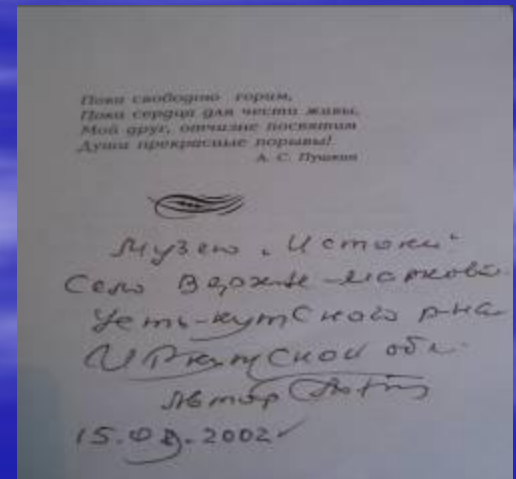 Пока свободою горим,
Пока сердца для чести живы,
Мой друг, отчизне посвятим
Души прекрасные порывы!
А. С. Пушкин
Музею „Истоки"
Село Верхне-марково
Усть-кутского р-на
Иркутской обл.
Автор
2002